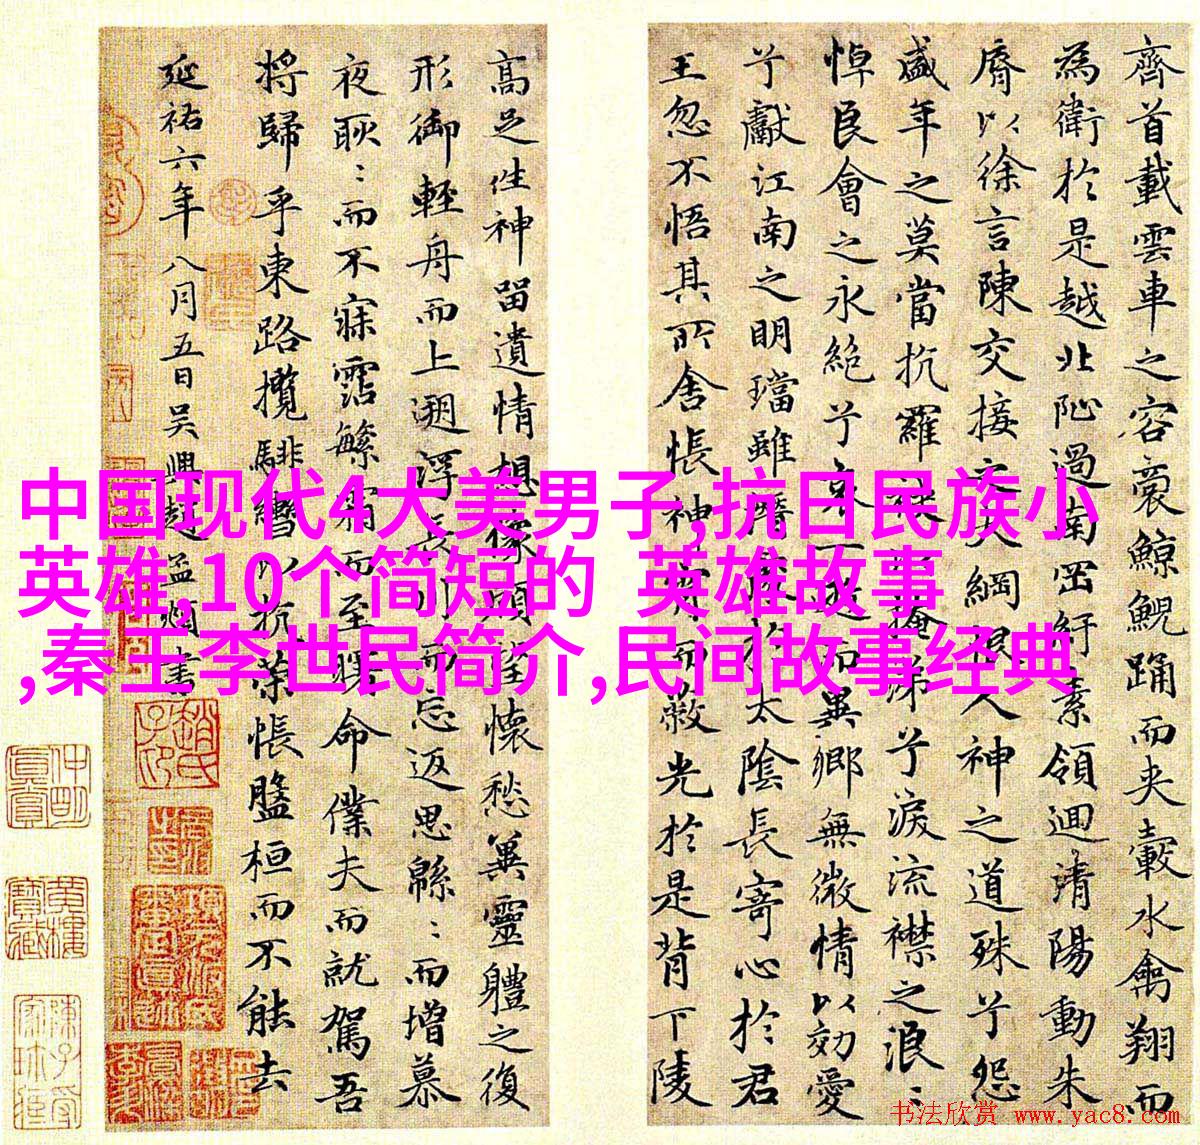 中国现代4大美男子,抗日民族小
英雄,10个简短的 英雄故事
,秦王李世民简介,民间故事经典
齊首載雲車之容裔鯨鯢踊而夾轂水禽翔而
為衛於是越北沚過南岡紆素領迴清陽動朱
脣以徐言陳交接之大綱恨人神之道殊兮怨
盛年之莫當抗羅袂以掩涕兮淚流襟之浪〻
悼良會之永絕兮哀一逝而異鄉無微情以効愛
兮獻江南之明璫雖潛處於太陰長寄心於君
王忽不悟其所舍悵神宵而蔽光於是背下陵
高足往神留遺情想像顧望懷愁冀靈體之復
形御輕舟而上遡浮長川而忘返思緜〻而增慕
夜耿〻而不寐霑繁霜而至曙命僕夫而就駕吾
將歸乎東路攬騑轡以抗策悵盤桓而不能去
延祐六年八月五日吳興趙孟頫書
趙氏子昂
书法欣赏 www.yac8.com